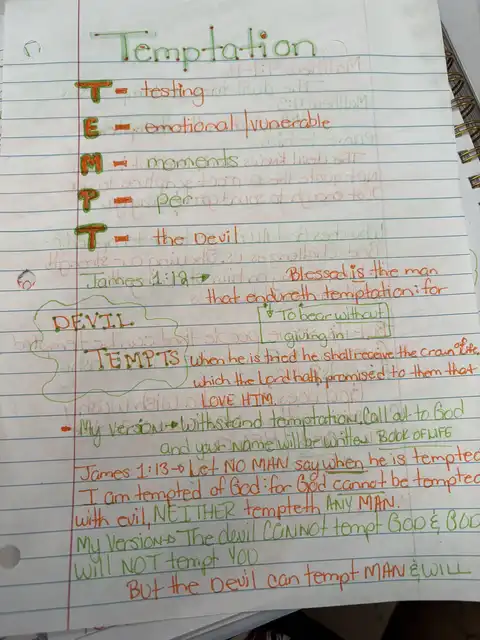 Temptation
T - testing
E - emotional/vunerable
M - moments
P - per
T - the Devil
James 1:12→ Blessed is the man
that endureth temptation: for
To bear without
giving in
DEVIL
TEMPTS
when he is tried he shall receive the crown of life,
which the Lord hath promised to them that
LOVE HIM.
- My version→ Withstand temptation, Call out to God
and your Name will be written BOOK OF LIFE
James 1:13→ Let NO MAN say when he is tempted
I am tempted of God: for God cannot be tempted
with evil, NEITHER tempteth ANY MAN.
My Version→ The devil CANNOT tempt GOD & GOD
will NOT tempt YOU
But the Devil can tempt MAN & WILL